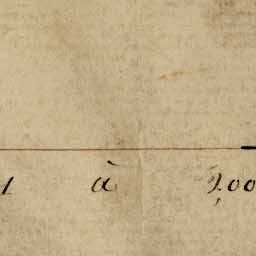 1 à 200